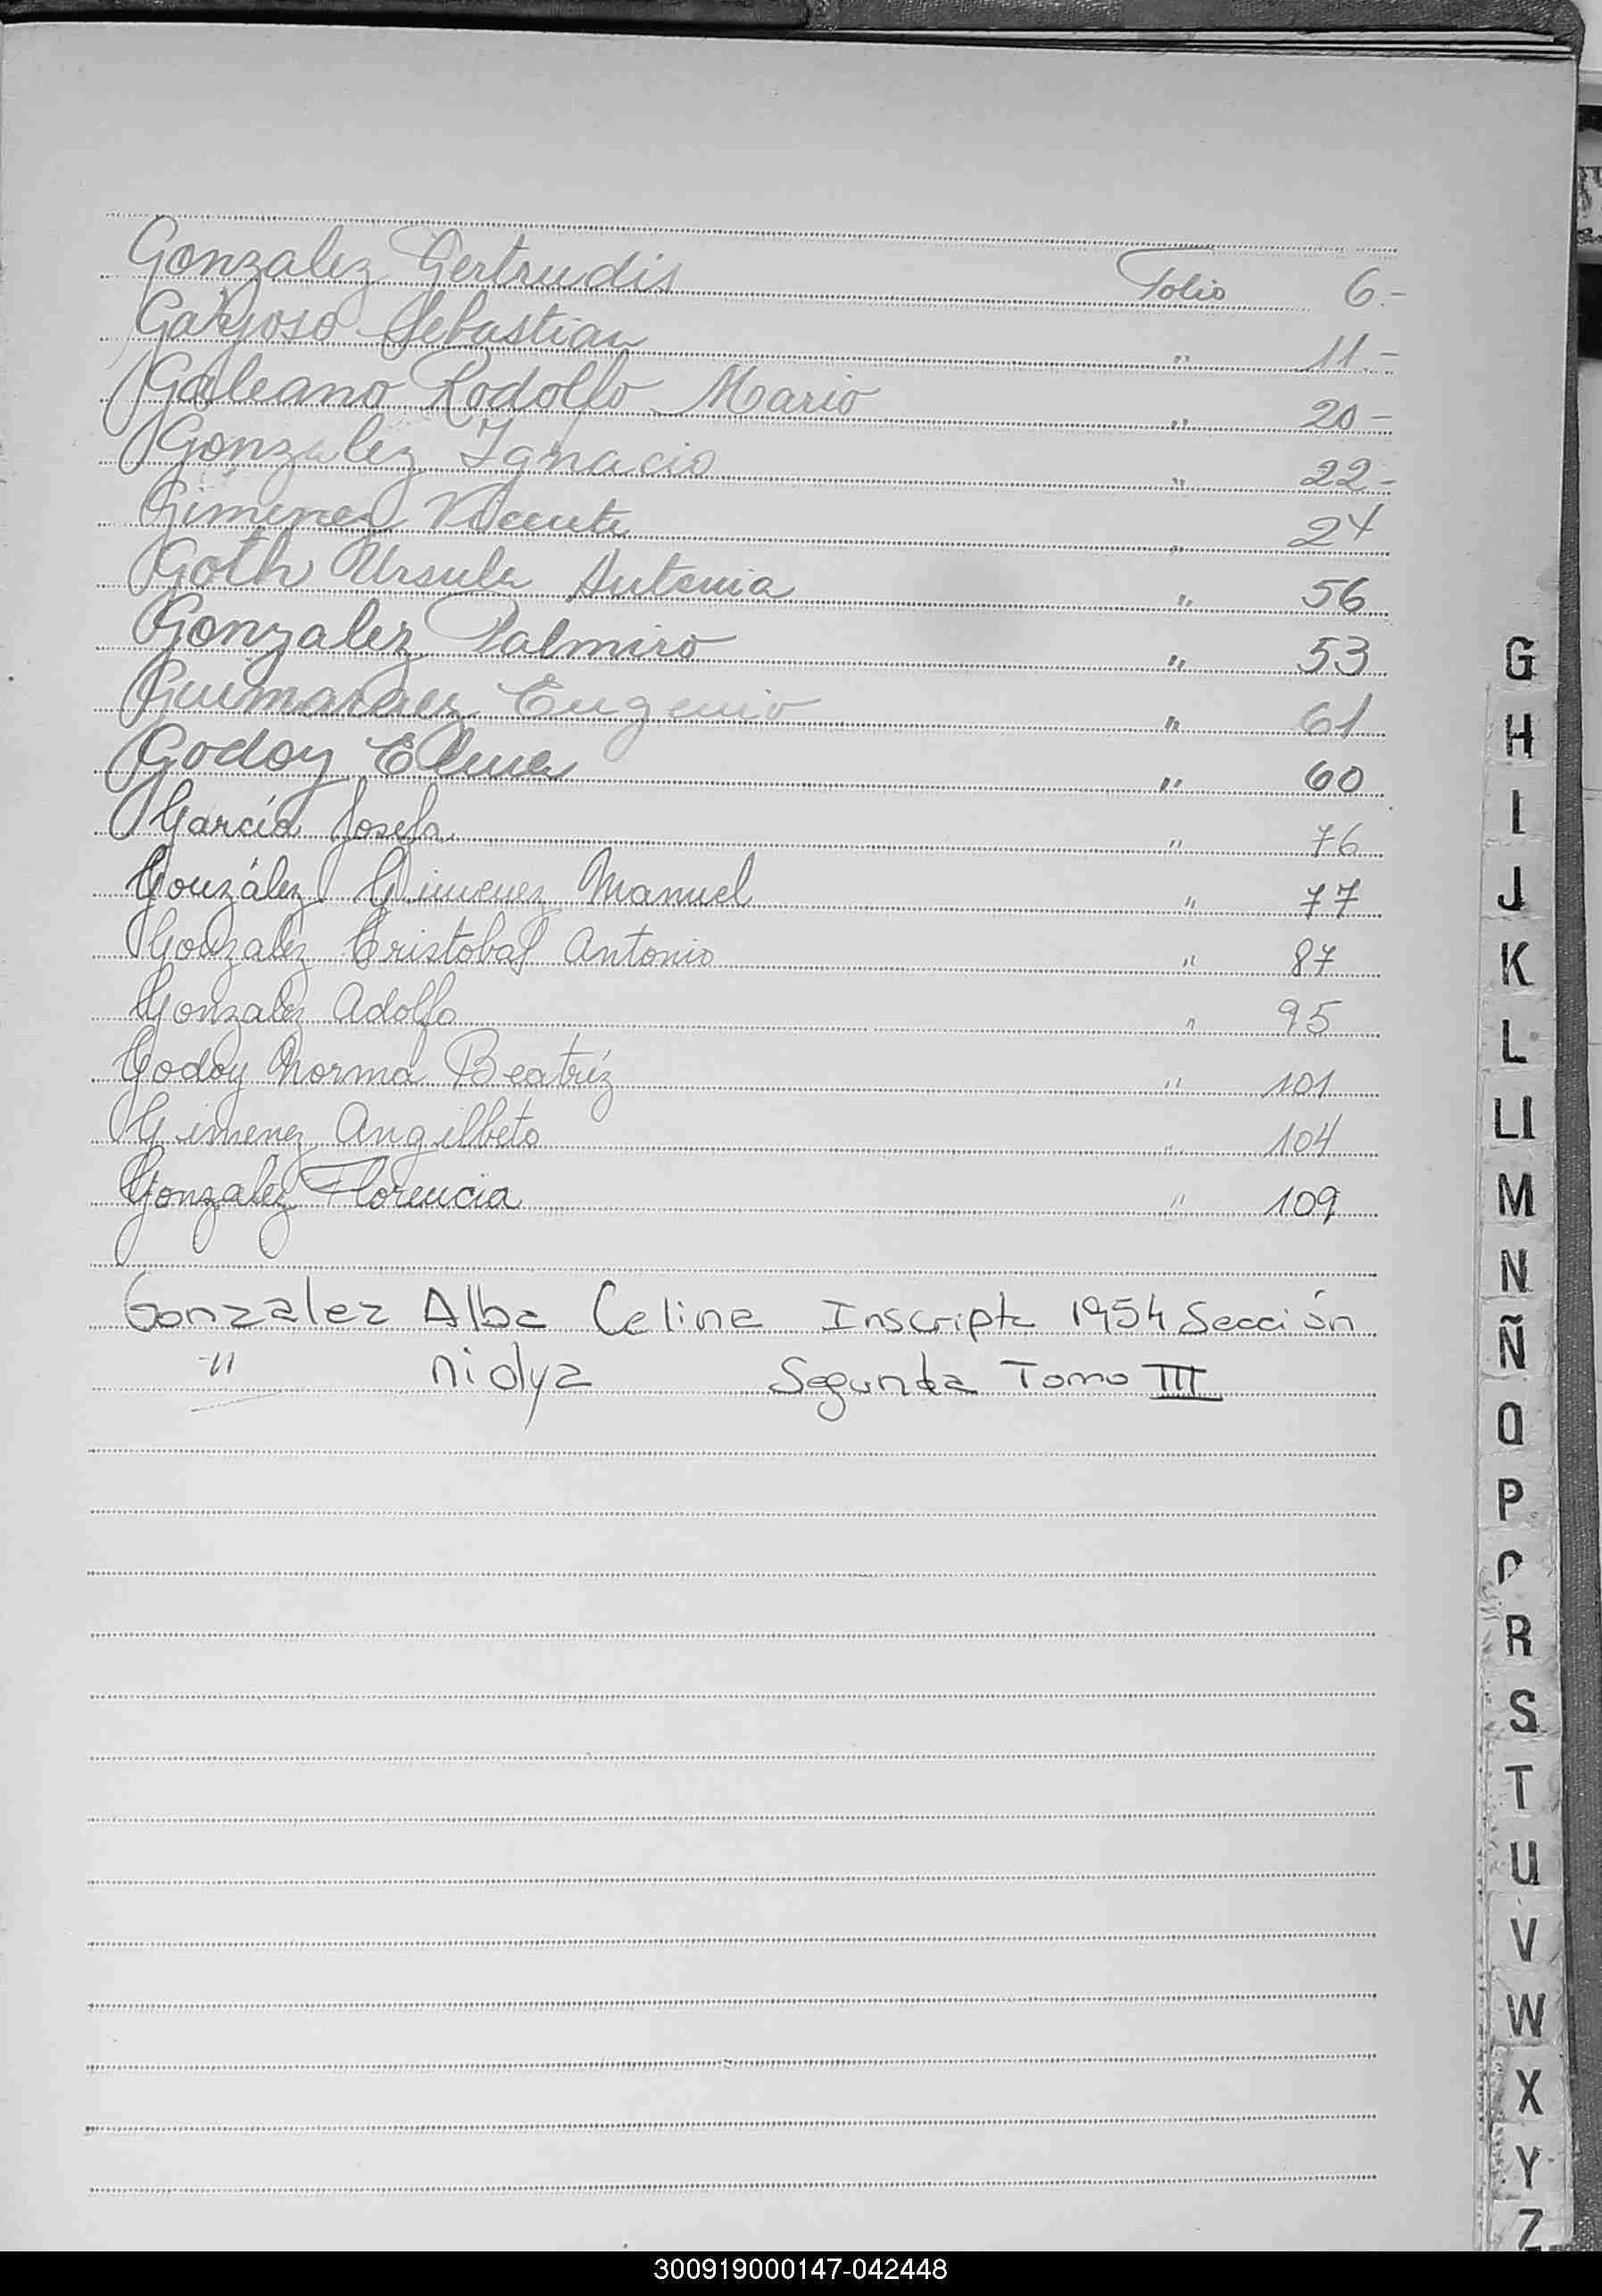 Gonzalez Gertrudis Folio 6.-
Sebastian " 11.-
Galeano Rodolfo Mario " 20-
Gonzalez Ignacio " 22-
Gimenez Vicente " 24
Goth Ursula Antonia " 56
Gonzalez Palmiro " 53
Eugenio " 61
Godoy Elma " 60
García Josefa " 76
González Gimenez Manuel " 77
Gonzalez Cristobal Antonio " 87
Gonzalez Adolfo " 95
Godoy Norma Beatríz " 101
Gimenez Angilbeto " 104
Gonzalez Florencia " 109
Gonzalez Alba Celina Inscripta 1954 Sección
" nidya Segunda Tomo III
G
H
I
J
K
L
Ll
M
N
Ñ
O
P
R
S
T
U
V
W
X
Y
Z
300919000147-042448